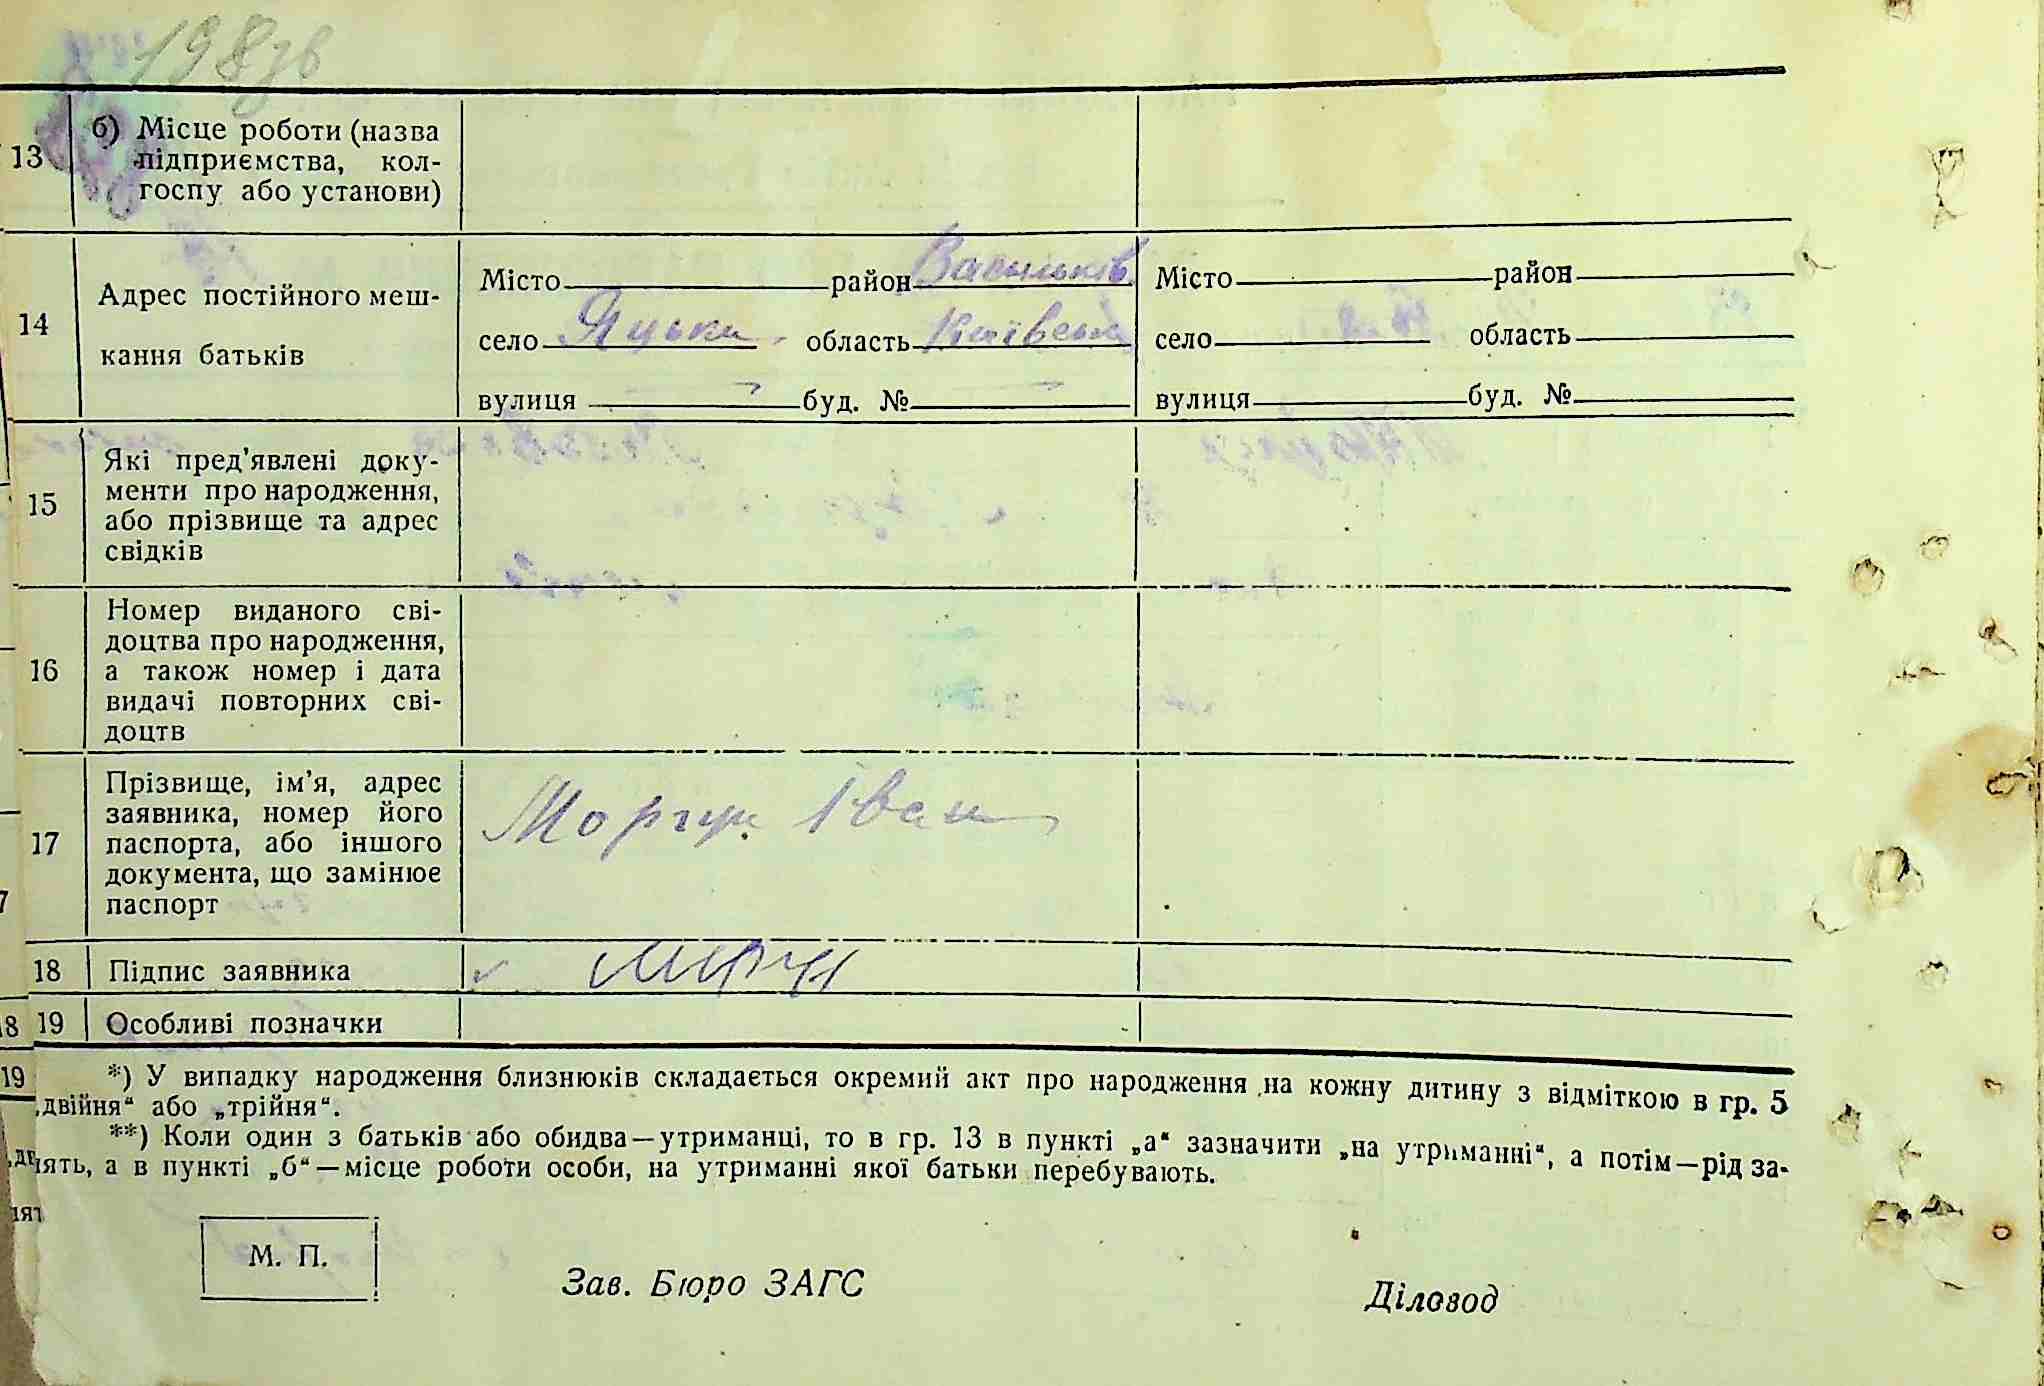 198зв
13
б) Місце роботи (назва
підприємства, кол-
госпу або установи)
14
Адрес постійного меш-
кання батьків
Місто район Васильків.
село Яцьки область Київська
вулиця буд. №
Місто район
село область
вулиця буд. №
15
Які пред'явлені доку-
менти про народження,
або прізвище та адрес
свідків
16
Номер виданого сві-
доцтва про народження,
а також номер і дата
видачі повторних сві-
доцтв
17
Прізвище, ім'я, адрес
заявника, номер його
паспорта, або іншого
документа, що замінює
паспорт
Моргун Іван
18 Підпис заявника
8 19 Особливі позначки
19 *) У випадку народження близнюків складається окремий акт про народження на кожну дитину з відміткою в гр. 5
„двійня“ або „трійня“.
**) Коли один з батьків або обидва—утриманці, то в гр. 13 в пункті „а“ зазначити „на утриманні“, а потім—рід за-
нять, а в пункті „б“—місце роботи особи, на утриманні якої батьки перебувають.
М. П.
Зав. Бюро ЗАГС
Діловод